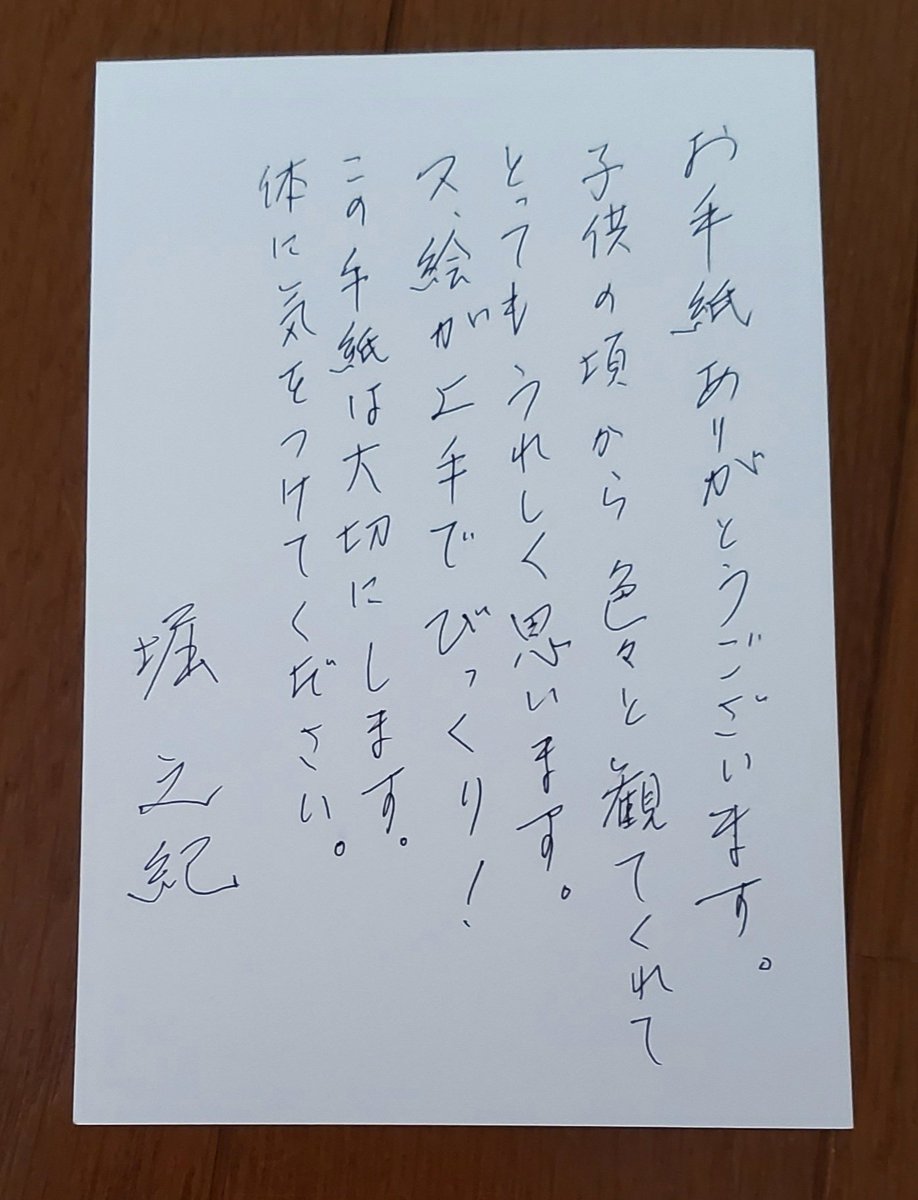 お手紙ありがとうございます。
子供の頃から色々と観てくれて
とってもうれしく思います。
又、絵が上手でびっくり！
この手紙は大切にします。
体に気をつけてください。
堀 之紀